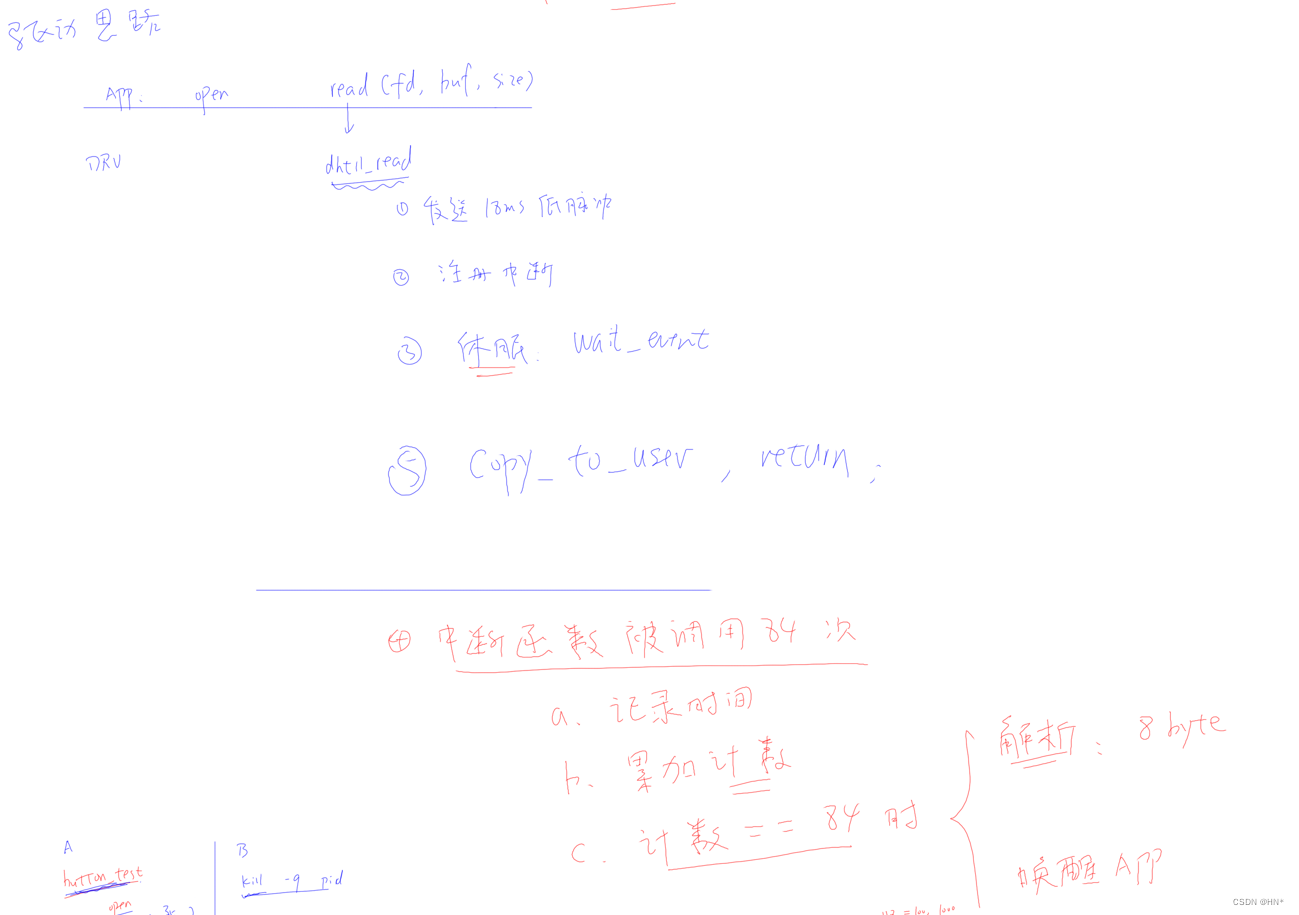 驱动思路
APP: open read (fd, buf, size)
DRV dht11_read
① 发送 18ms 低脉冲
② 注册中断
③ 休眠: wait_event
⑤ copy_to_user , return ;
④ 中断函数被调用 84 次
a. 记录时间
b. 累加计数
c. 计数 == 84 时
解析: 8 byte
唤醒 APP
A
button_test
open
B
kill -9 pid
CSDN @HN*